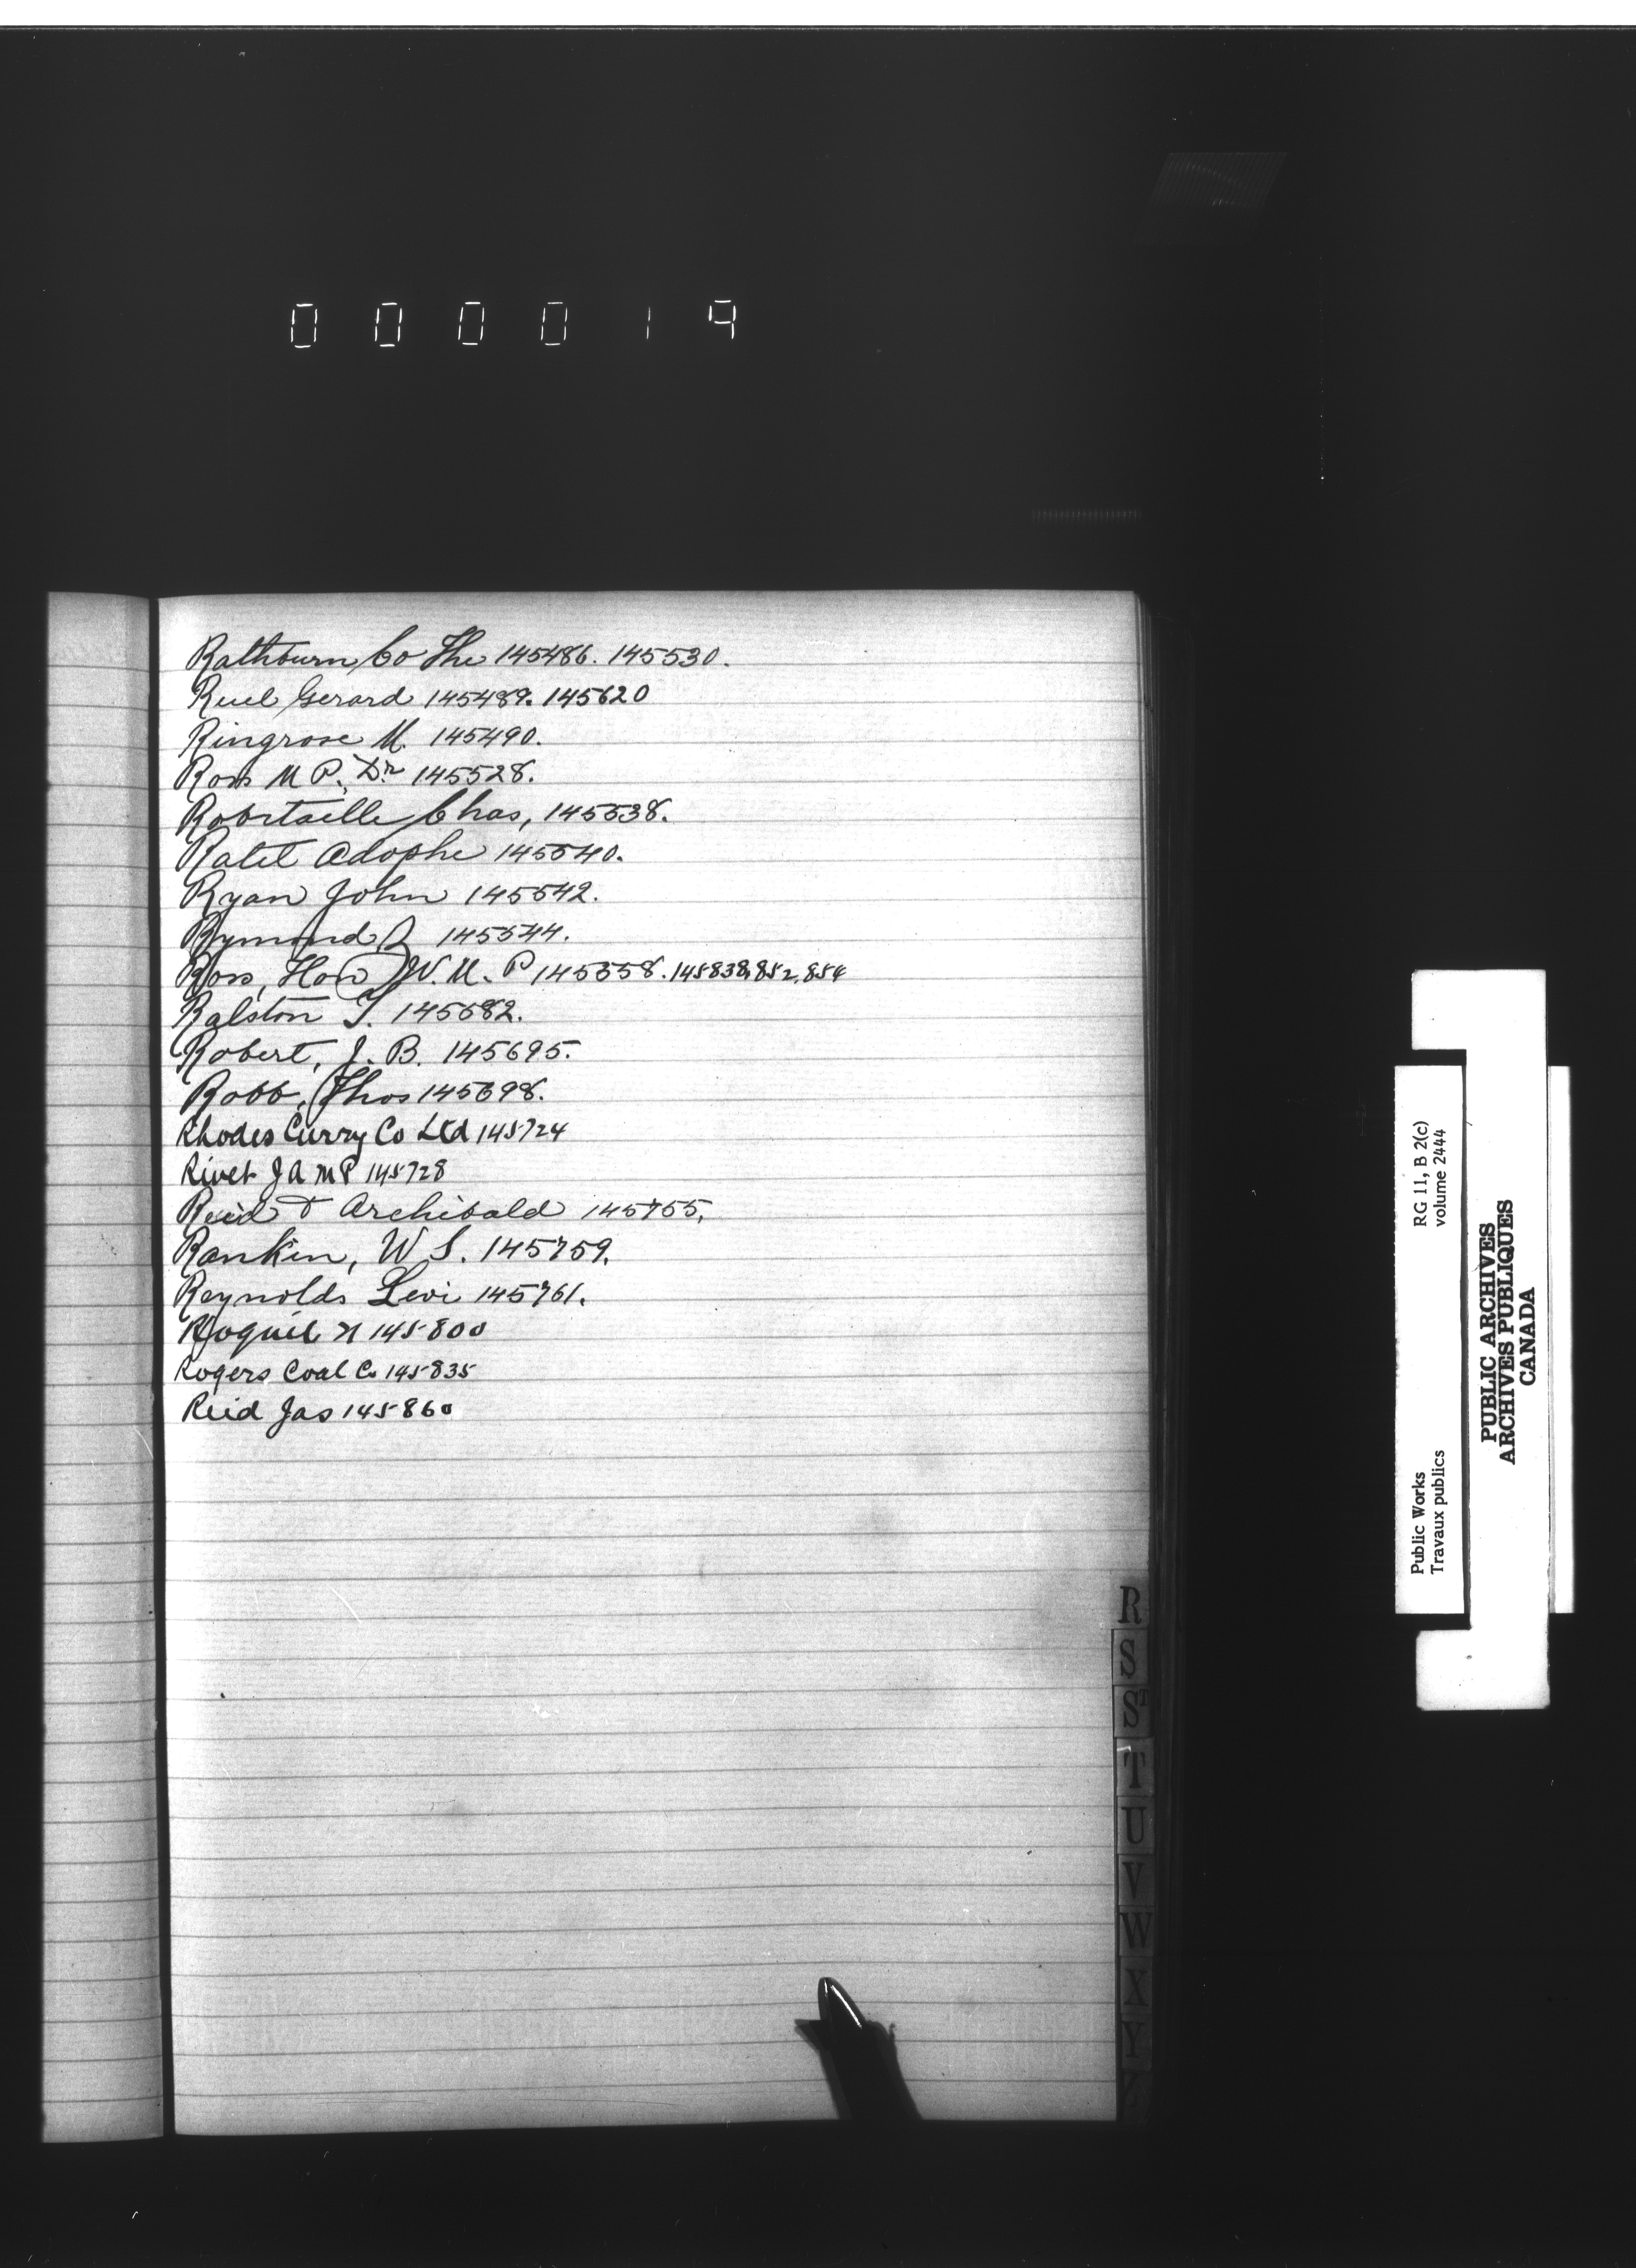 000019
Rathburn Co The 145486. 145530.
Ruel Gerard 145489. 145620
Ringrose M. 145490.
Ross M P. Dr 145528.
Robitaille Chas, 145538.
Ratel Adophe 145540.
Ryan John 145542.
Rymond J 145544.
Ross, Hon W. M. P 145558. 145838,852,854
Ralston T. 145582.
Robert, J. B. 145695.
Robb, Thos 145698.
Rhodes Curry Co Ltd 145724
Rivet J A M P 145728
Reid & Archibald 145755.
Rankin, W S. 145759.
Reynolds Levi 145761.
Roquil N 145800
Rogers Coal Co 145835
Reid Jas 145860
R
S
St
T
U
V
W
X
Y
Public Works
Travaux publics
RG 11, B 2(c)
volume 2444
PUBLIC ARCHIVES
ARCHIVES PUBLIQUES
CANADA